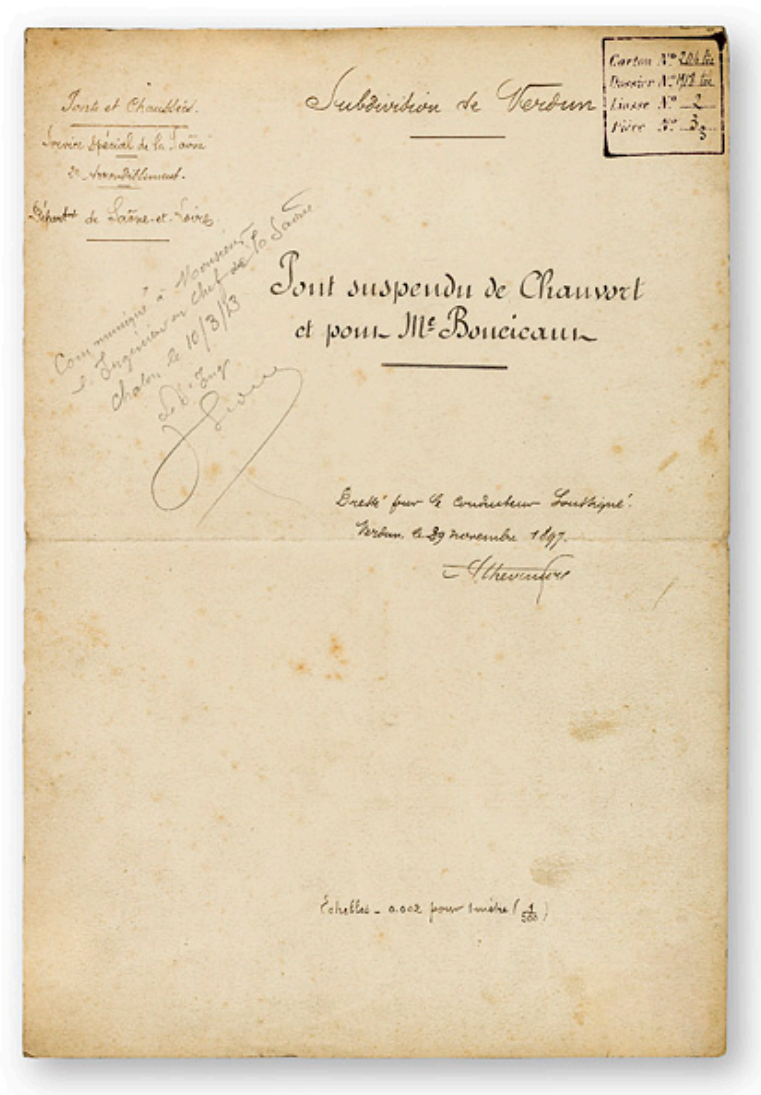 Ponts et Chaussées.
Service Spécial de la Saône
2e Arrondissement.
Départt de Saône-et-Loire
Subdivision de Verdun
Carton No 204 bis
Dossier No 1912 bis
Liasse No 2
Pièce No 3
Communiqué à Monsieur
l'Ingénieur en chef de la Saône
Chalon le 10/3/13
Pont suspendu de Chauvort
et pour Me Boucicaut
Dressé par le Conducteur soussigné.
Verdun, le 29 novembre 1897.
Echelles - 0.002 pour 1 mètre (1/500)